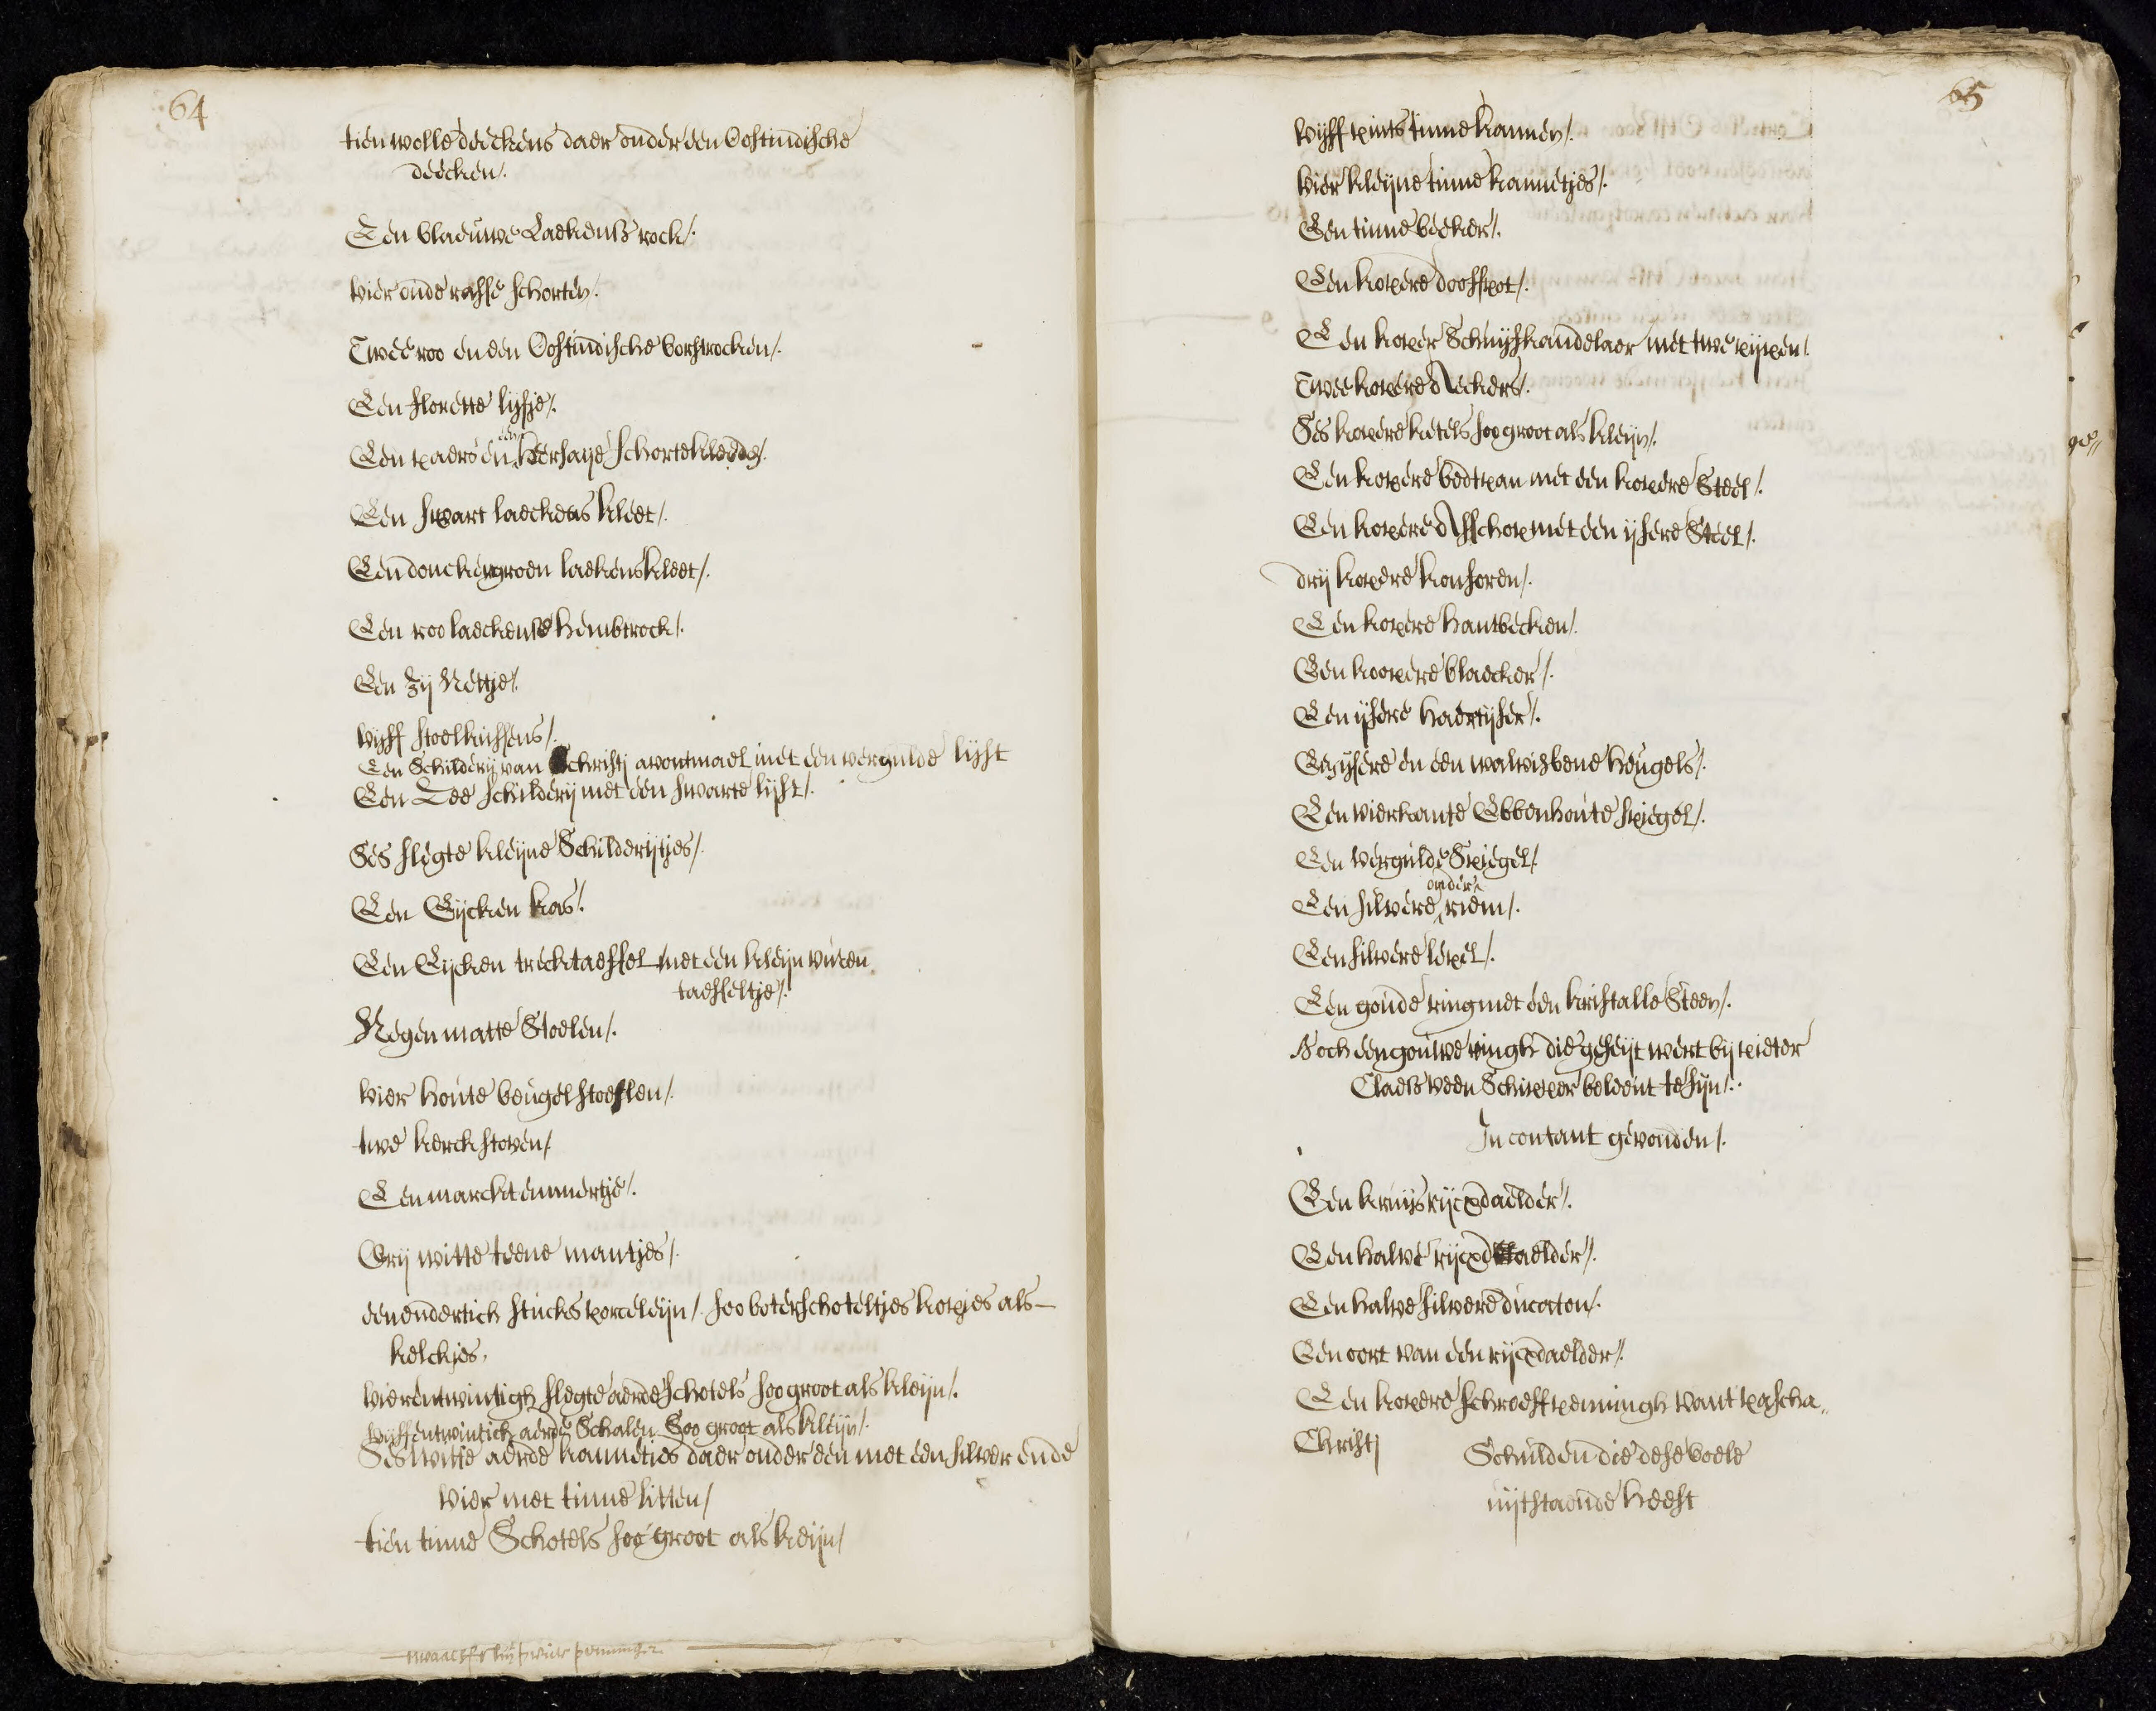 64
tien wolle deeckens daer onder een Oostindische
deecken /.
Een blaeuwe Laekenss rock /.
vier oude rasse schorten /.
Twee roo en een Oostindische borstrocken /.
Een florette lijfje /.
een
Een paers en karsaye schorteklede /.
Een swart laeckens kleet /.
Een donckergroen laekens kleet /.
Een roo laeckense hembtrock /.
Een zij Netje /.
vijff stoelkussens /.
Een Schilderij van Christj avontmael met een vergulde lijst
Een Zee schilderij met een swarte lijst /.
Ses slegte kleijne Schilderijtjes /.
Een Eijcken kas /.
Een Eijcken trecktaeffel met een kleijn vuren
taeffeltje /.
Negen matte Stoelen /.
vier houte beugel stoelen /.
twe kerck stoven /
Een marcktemmertje /.
Drij witte teene mantjes /.
eenendertich stucks porceleijn / soo boterschoteltjes kopjes als
kelckjes,
vierentwintigh slegte aerde schotels soo groot als kleijn /.
vijffentwintich aerde Schalen Soo groot als kleijn /.
Ses witte aerde kanneties daer onder een met een silver ende
vier met tinne litten /
tien tinne Schotels soo groot als kleijn /
65
vijff pints tinne kannen /.
vier kleijne tinne kannetjes /.
Een tinne beeker /.
Een kopere doofpot /.
Een koper Schuijfkandelaer met twe pijpen /.
Twee kopere Aeckers /.
Ses kopere ketels soo groot als kleijn /.
Een kopere bedtpan met een kopere Steel /.
Een kopere Asschop met een ijsere Steel /.
drij kopere konforen /.
Een kopere hantbecken /.
Een koopere blaecker /.
Een ijsere haertijser /.
Een ijsere en een walvisbene heugels /.
Een vierkante Ebbenhoute spiegel /.
Een vergulde Spiegel /
onder
Een silvere riem /.
Een silvere lepel /.
Een goude ring met een kristalle Steen /.
Noch een gouwe ringh die geseijt wert bij pieter
Claess veen Schipper beleent te sijn /.
In contant gevonden /.
Een kruijs rijcxdaelder /.
Een halve rijcxdaelder /.
Een halve silvere ducaton /.
Een oort van een rijcxdaelder /.
Een kopere schroeffpenningh vant pascha
Christj
Schulden die dese boele
uijtstaende heeft